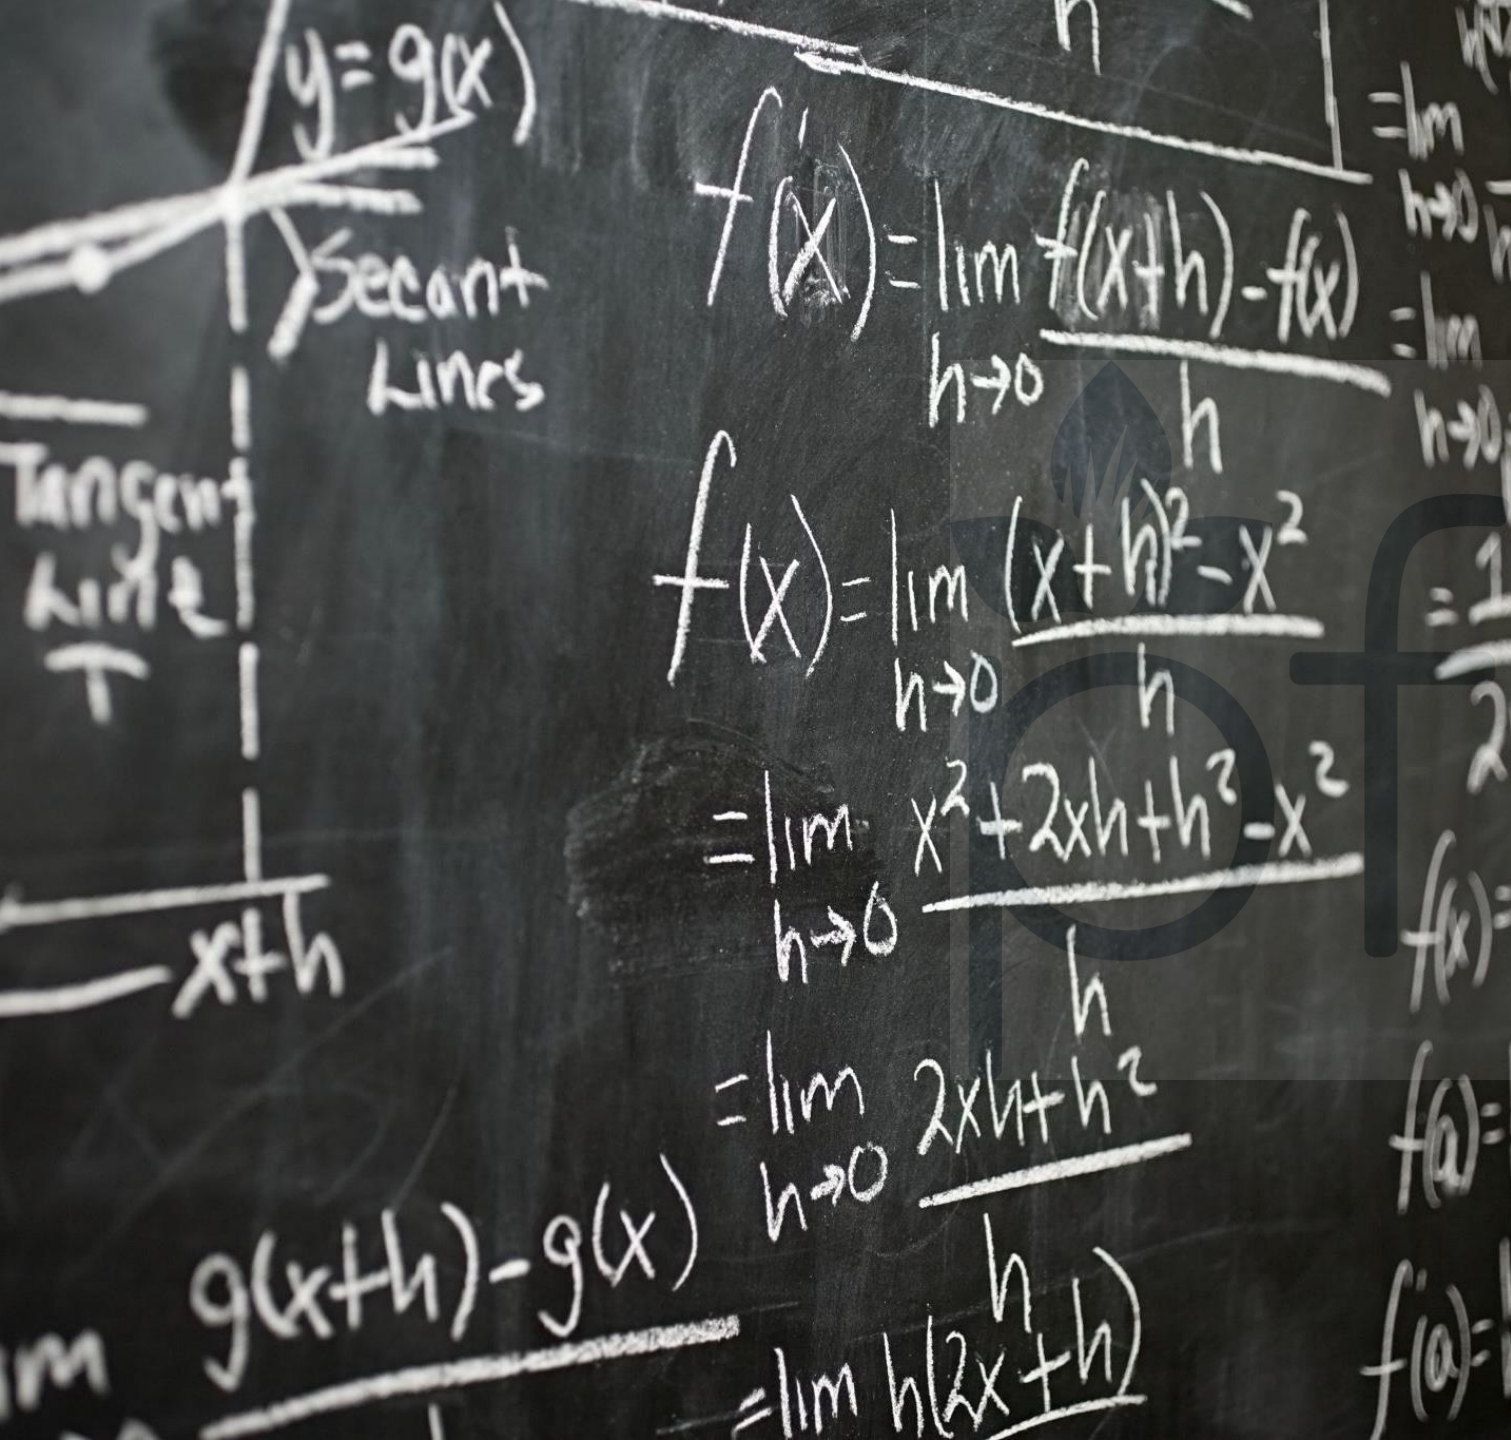 y = g(x)
Secant
Lines
Tangent
Line
T
x+h
g(x+h) - g(x)
h
f'(x) = lim f(x+h) - f(x)
h→0 h
f(x) = lim (x+h)² - x²
h→0 h
= lim x² + 2xh + h² - x²
h→0 h
= lim 2xh + h²
h→0 h
= lim h(2x+h)
= lim
h→0
= lim
h→0
= 1
2
f(x) =
f(a) =
f'(a) =
pf